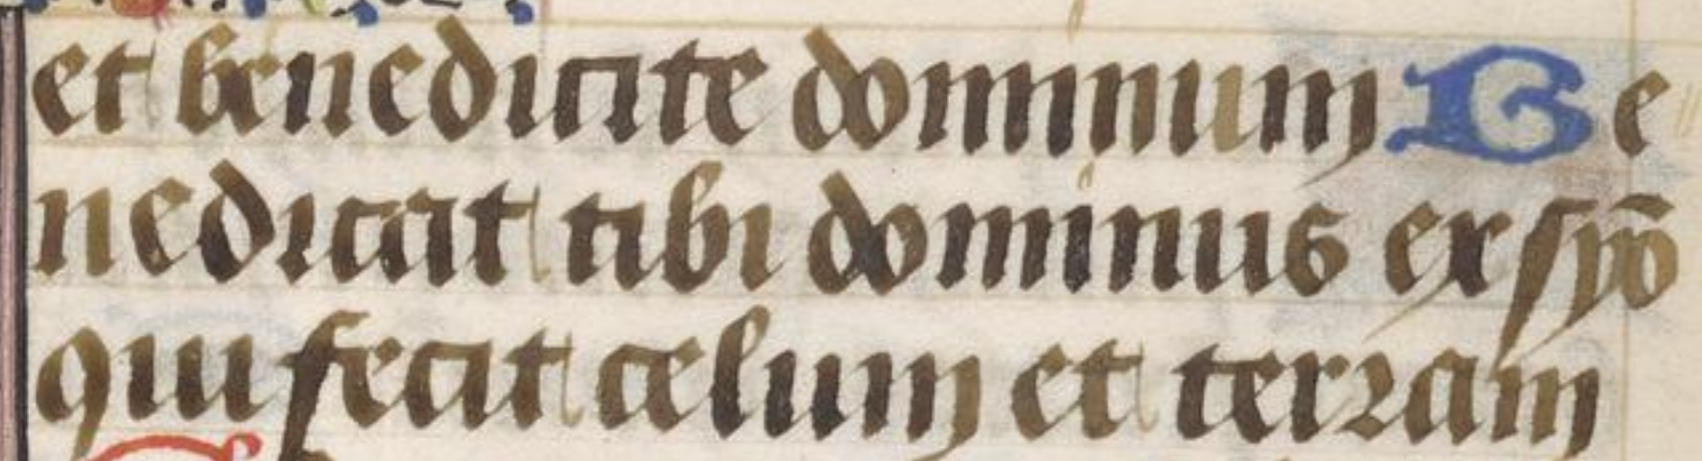 et benedicite dominum Be
nedicat tibi dominus ex syō
qui fecit celum et terram